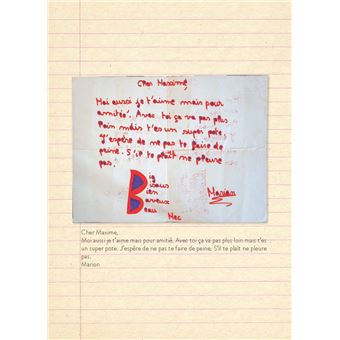 Cher Maxime,
Moi aussi je t'aime mais pour
amitié. Avec toi ça va pas plus
loin mais t'es un super pote,
j'espère de ne pas te faire de
peine. S'il te plaît ne pleure
pas.
Big
Bisous
Bien
Baveux
Beau
Mec
Marion
Cher Maxime,
Moi aussi je t'aime mais pour amitié. Avec toi ça va pas plus loin mais t'es
un super pote. J'espère de ne pas te faire de peine; S'il te plaît ne pleure
pas.
Marion